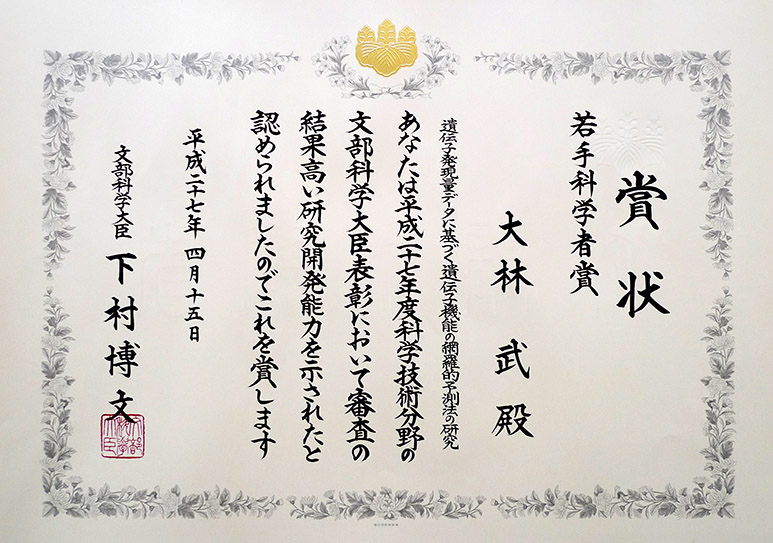 賞状
若手科学者賞
大林 武 殿
遺伝子発現量データに基づく遺伝子機能の網羅的予測法の研究
あなたは平成二十七年度科学技術分野の
文部科学大臣表彰において審査の
結果高い研究開発能力を示されたと
認められましたのでこれを賞します
平成二十七年 四月十五日
文部科学大臣 下村博文
文部科学大臣